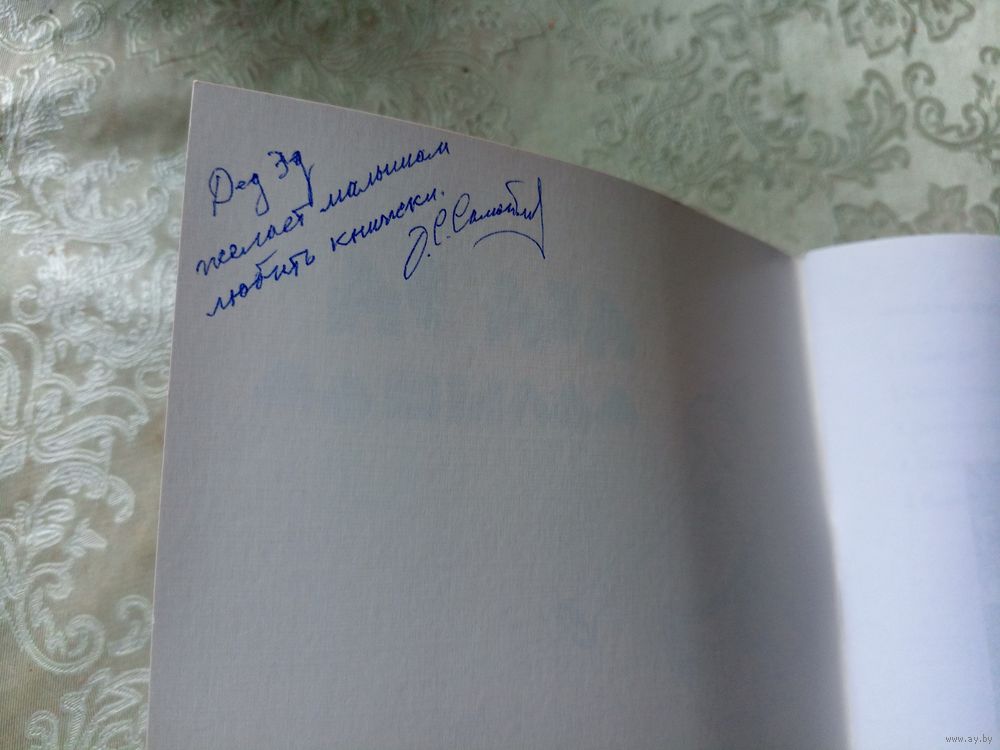 Дед Эд
желает малышам
любить книжски.
www.ay.by